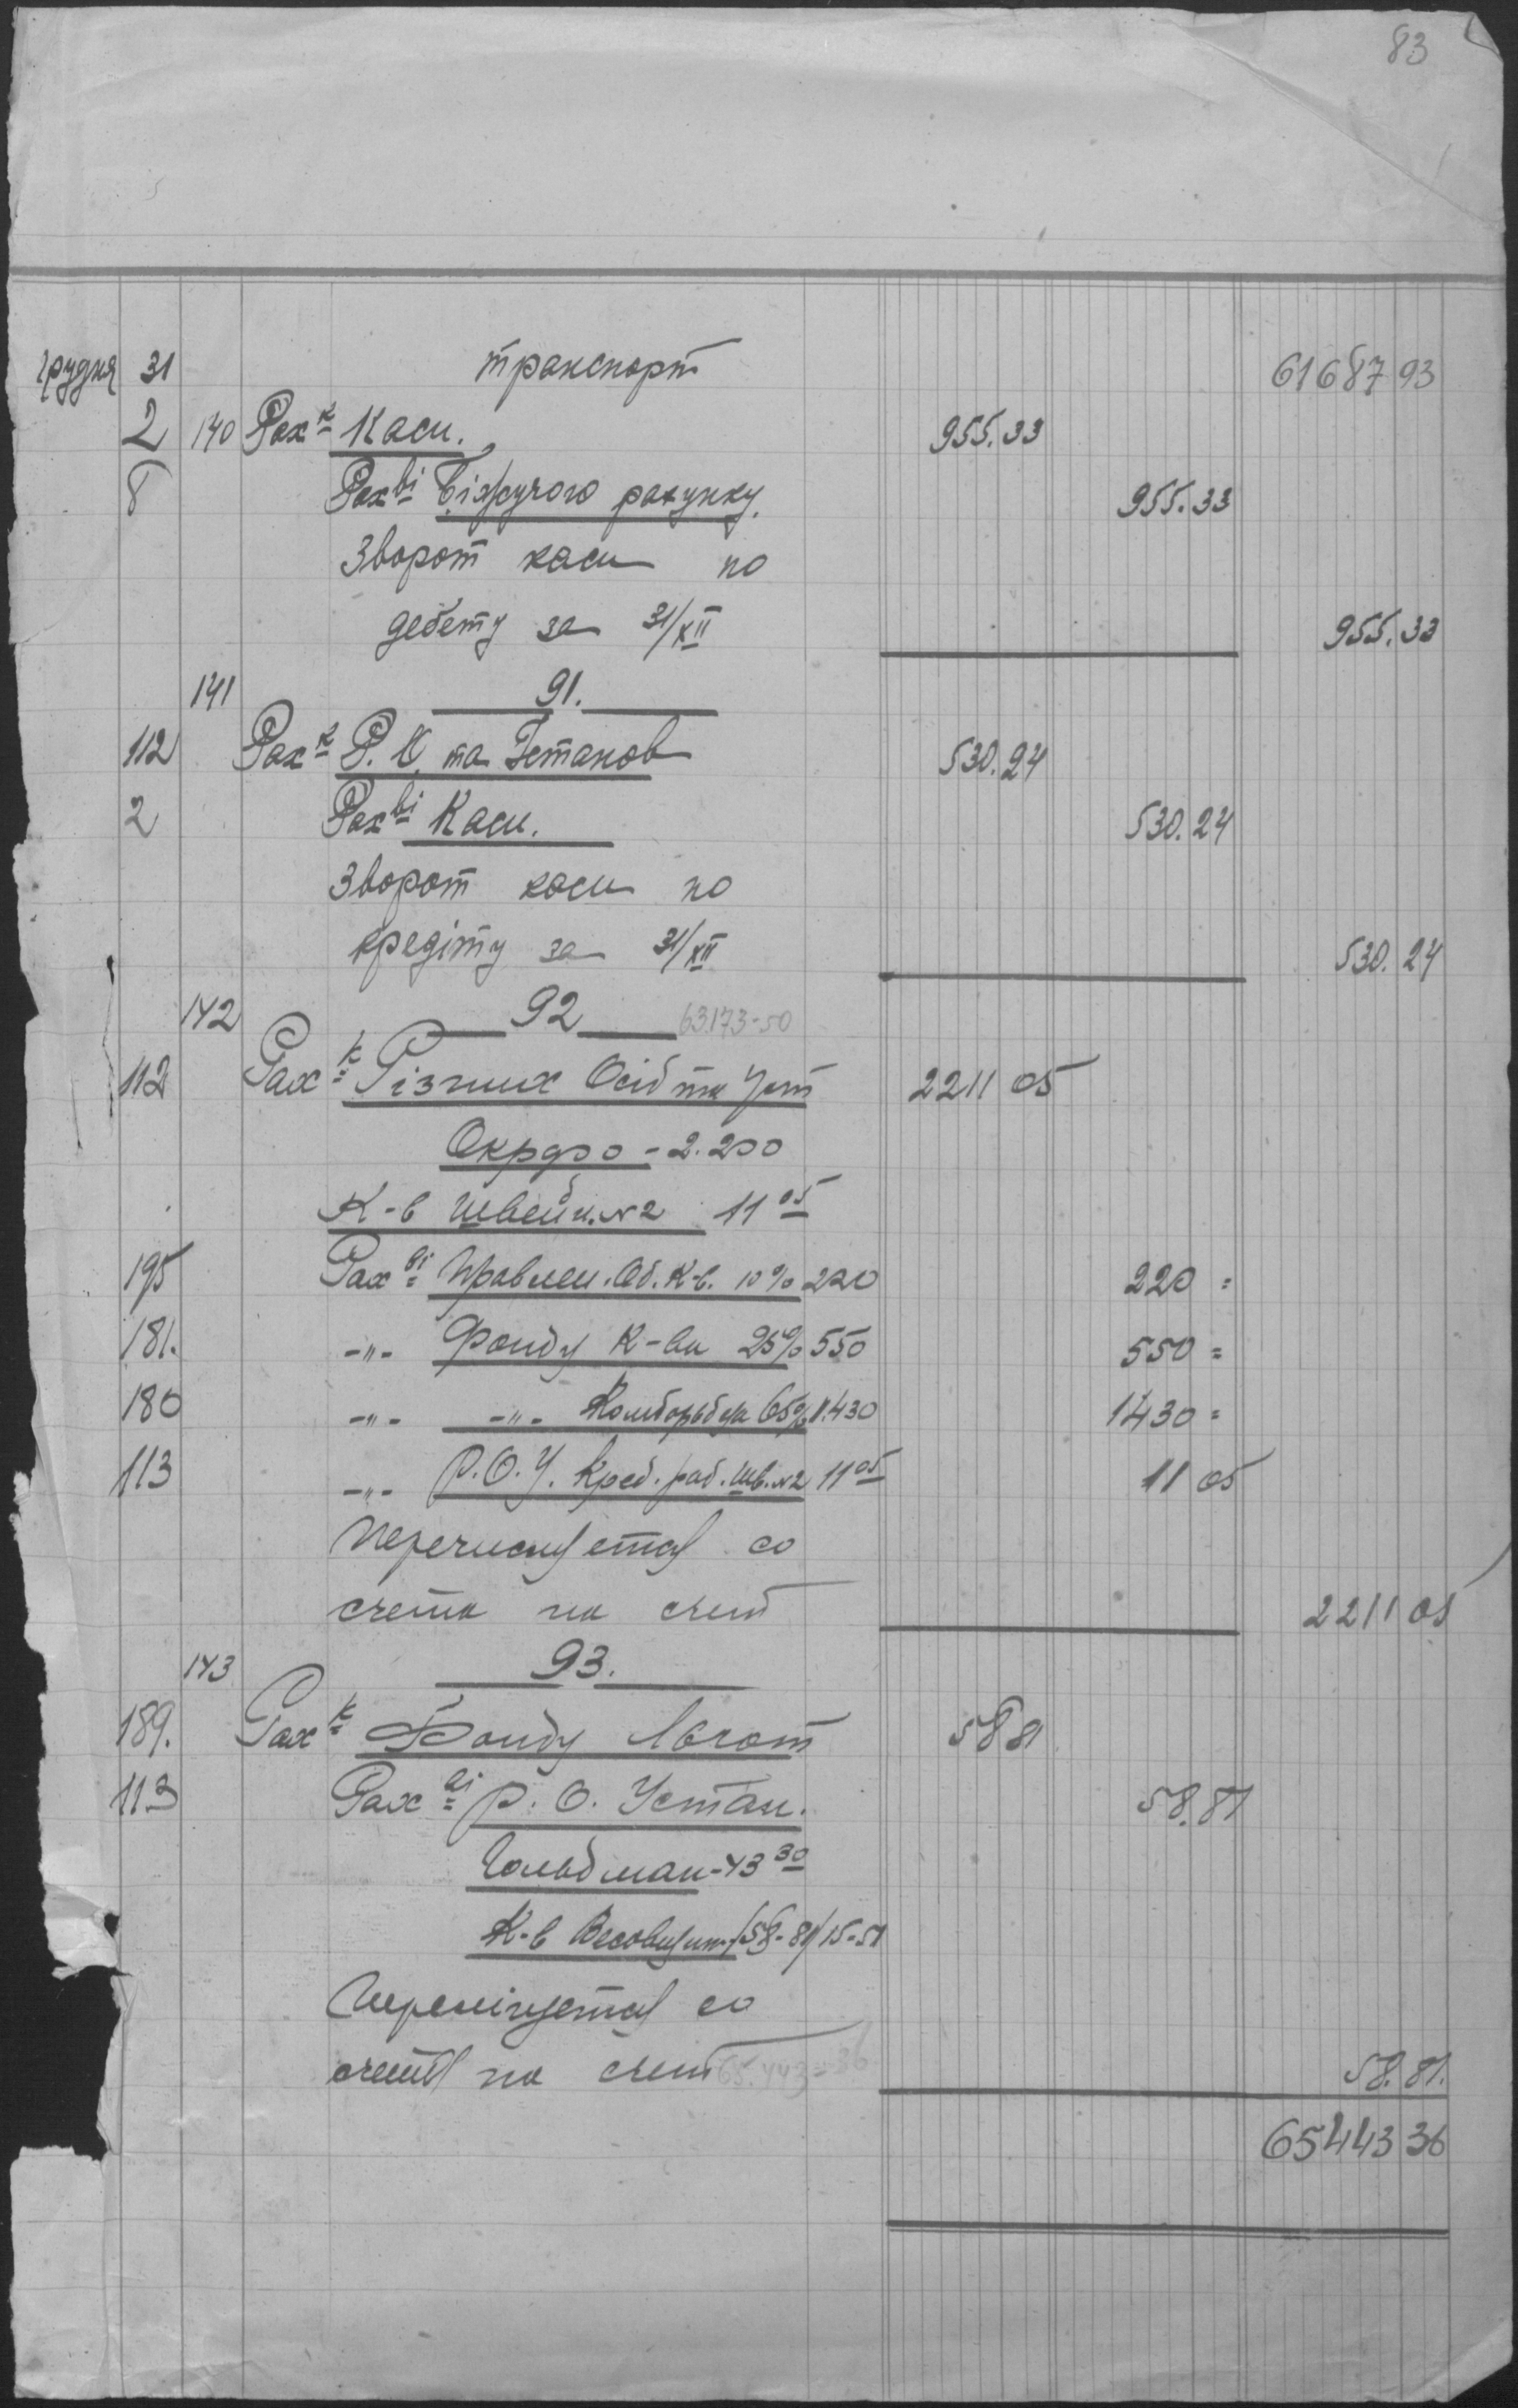 83
грудня 31 транспорт 61687 93
2 140 Рах к Каси. 955.33
8 Рах ві Біжучого рахунку. 955.33
Зворот каси по
дебету за 31/XII 955.33
141 91.
112 Рах к Р. О. та Установ 530.24
2 Рах ві Каси. 530.24
Зворот каси по
кредіту за 31/XII 530.24
142 92 63.173-50
112 Рах к Різних Осіб та Уст 2211 05
2.200
К-в Швейн. №2 11 05
195 Рах ві Правлен. Об. К-в. 10% 220 220 =
181. -"- Фонду К-ва 25% 550 550 =
180 -"- -"- 65% 1.430 1430 =
113 -"- Р.О.У. Кред. раб. шв. №2 11 05 11 05
Перечисляется со
счета на счет 2211 05
143 93.
189. Рах к Фонду 58 81
113 Рах ві Р. О. Устан. 58.81
Гольдман-43 30
К-в /58-81/ 15-51
со
счета на счет 65.443=36 58.81.
65443 36